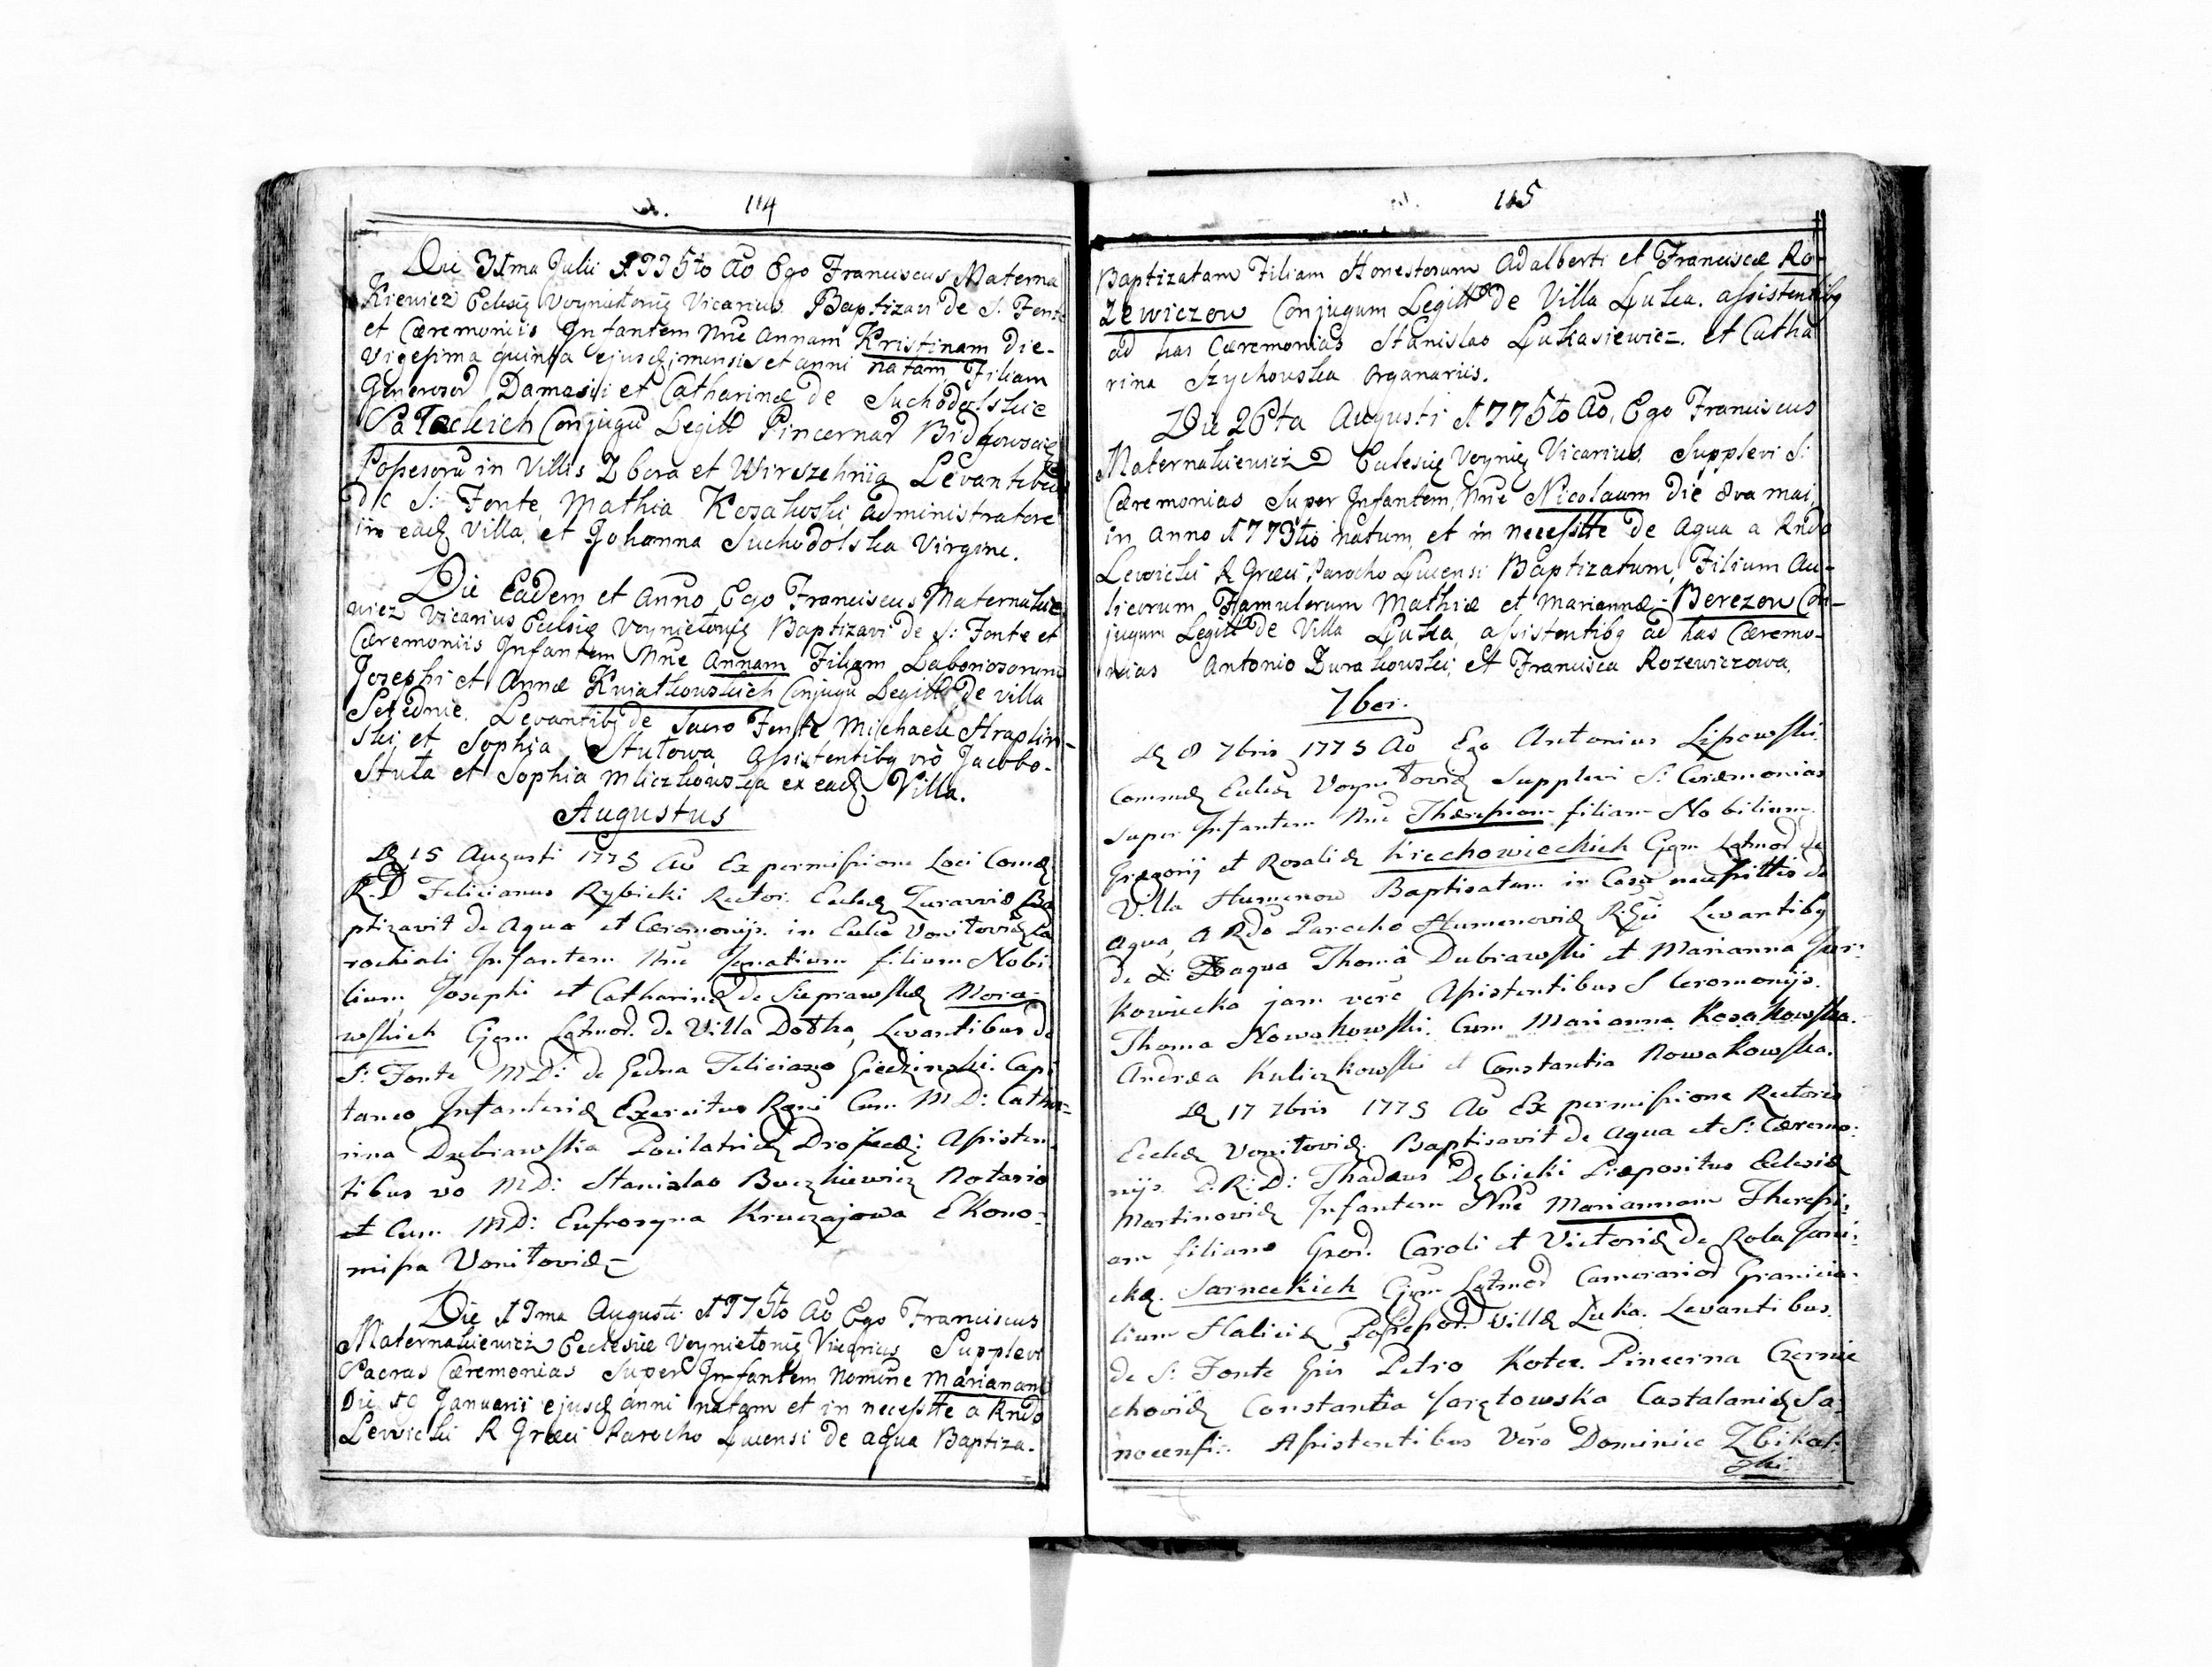 114
Die 31ma Julii 1775to Ao Ego Franciscus Materna
kiewicz Eclesię Voynietonię Vicarius Baptizavi de S: Fonte
et Cæremoniis Infantem Nne Annam Kristinam Die-
vigesima quinta ejusdq mensis et anni natam Filiam
Generosor Damasii et Catharinæ de Suchodolskie
Conjugū Legitt Pincernar
Possesorū in Villis Zbora et Levantibus
de S: Fonte, Mathia Kosakoski administratore
in eadq Villa, et Johanna Suchodolska Virgine.
Die Eadem et Anno Ego Franciscus Maternakie
wicz Vicarius Eclesię Voynietonię Baptizavi de S: Fonte et
Cæremoniis Infantem Nne Annam Filiam Laboriosorum
Josephi et Annæ Kwiatkouskich Conjugū Legitt de villa
Serednie. Levantibq de Sacro Fonte Michaele Straplin-
ski et Sophia Stutowa, Assistentibq vrò Jacobo-
Stuta et Sophia Mliczkouska ex eadq Villa.
Augustus
Dę 15 Augusti 1775 Ao Ex permissione Loci Comdę
R.D Felicianus Rybicki Rector Eccleę Zuravnię Ba
ptizavit de Aqua et Cæremonijs in Ecclīa Vonitovię Pa
rochiali Infantem Nne Ignatium filium Nobi
lium Josephi et Catharinę de Sieprawskę Mora-
wskich Cjgm Lgtmor. de Villa Dołha, Levantibus de
S: Fonte MD: de Gedna Feliciano Giedzinski Capi
taneo Infanterię Exercitus Regni Cum MD: Catha-
rina Dubrawska Assisten
tibus vo MD: Stanislao Buczkiewicz Notario
et Cum MD: Eufrosyna Kruczajowa Ekono-
missa Vonitovię
Die 17ma Augusti 1775to Ao Ego Franciscus
Maternakiewicz Ecclesiæ Voynietonię Vicarius Supplevi
Sacras Cæremonias Super Infantem Nomine Mariannam
Die Januarii ejusdq anni natam et in necessitte a Rndo
Lewicki R Græci Parocho Lucensi de aqua Baptiza-
115
Baptizatam Filiam Honestorum Adalberti et Franciscæ Ro-
zewiczow Conjugum Legitt de Villa Luka. assistentibq
ad has Cæremonias Stanislao Lukasiewicz. et Catha
rina Szychouska Organariis.
Die 26ta Augusti 1775to Ao, Ego Franciscus
Maternakiewicz Eclesię Voynię Vicarius Supplevi S:
Cæremonias Super Infantem Nne Nicolaum die 8va mai,
in anno 1775to natum et in necessitte de Aqua a Rndo
Lewicki R Græci Parocho Lucensi Baptizatum, Filium Au-
licorum Famulorum Mathiæ et Mariannæ Berezow Con-
jugum Legitt de Villa Luka, assistentibq ad has Cæremo-
nias Antonio Zurakouski, et Francisca Rozewiczowa.
7bri.
Dę 8 7bris 1775 Ao Ego Antonius Lipowski
Commdę Eccleę Vonitovię Supplevi S: Ceræmonias
super Infantem Nne Theressiam filiam Nobilium
Gregorij et Rosalię Krechowieckich Cjgm Lgtmor de
Villa Humenow Baptisatam in Casu necessittis de
Aqua, A Rdo Parocho Humenovię R:Gri Levantibq
de aqua Thoma Dubrawski et Marianna Jur-
kowiecka jam vere Assistentibus S Ceromonijs
Thoma Nowakowski Cum Marianna Kosakowska.
Andrea Kuliczkowski et Constantia Nowakowska.
Dę 17 7bris 1775 Ao Ex permissione Rectoris
Eccleę Vonitovię Baptisavit de Aqua et S: Cæremo-
nijs P.R:D: Thadæus Dębicki Præpositus Eclesię
Martinovię Infantem Nne Mariannam Theressi-
am filiam Gror. Caroli et Victorię de Rola Jani-
ckę. Sarneckich Cjgm Lgtmor Camerarior Granicia-
lium Halicię Possessor. Villę Luka. Levantibus.
de S: Fonte Gris Petro Kotec. Pincerna Czernie
chovię Constantia Castalanię Sa-
nocensi: Assistentibus Vero Dominico Zbikal-
ski.